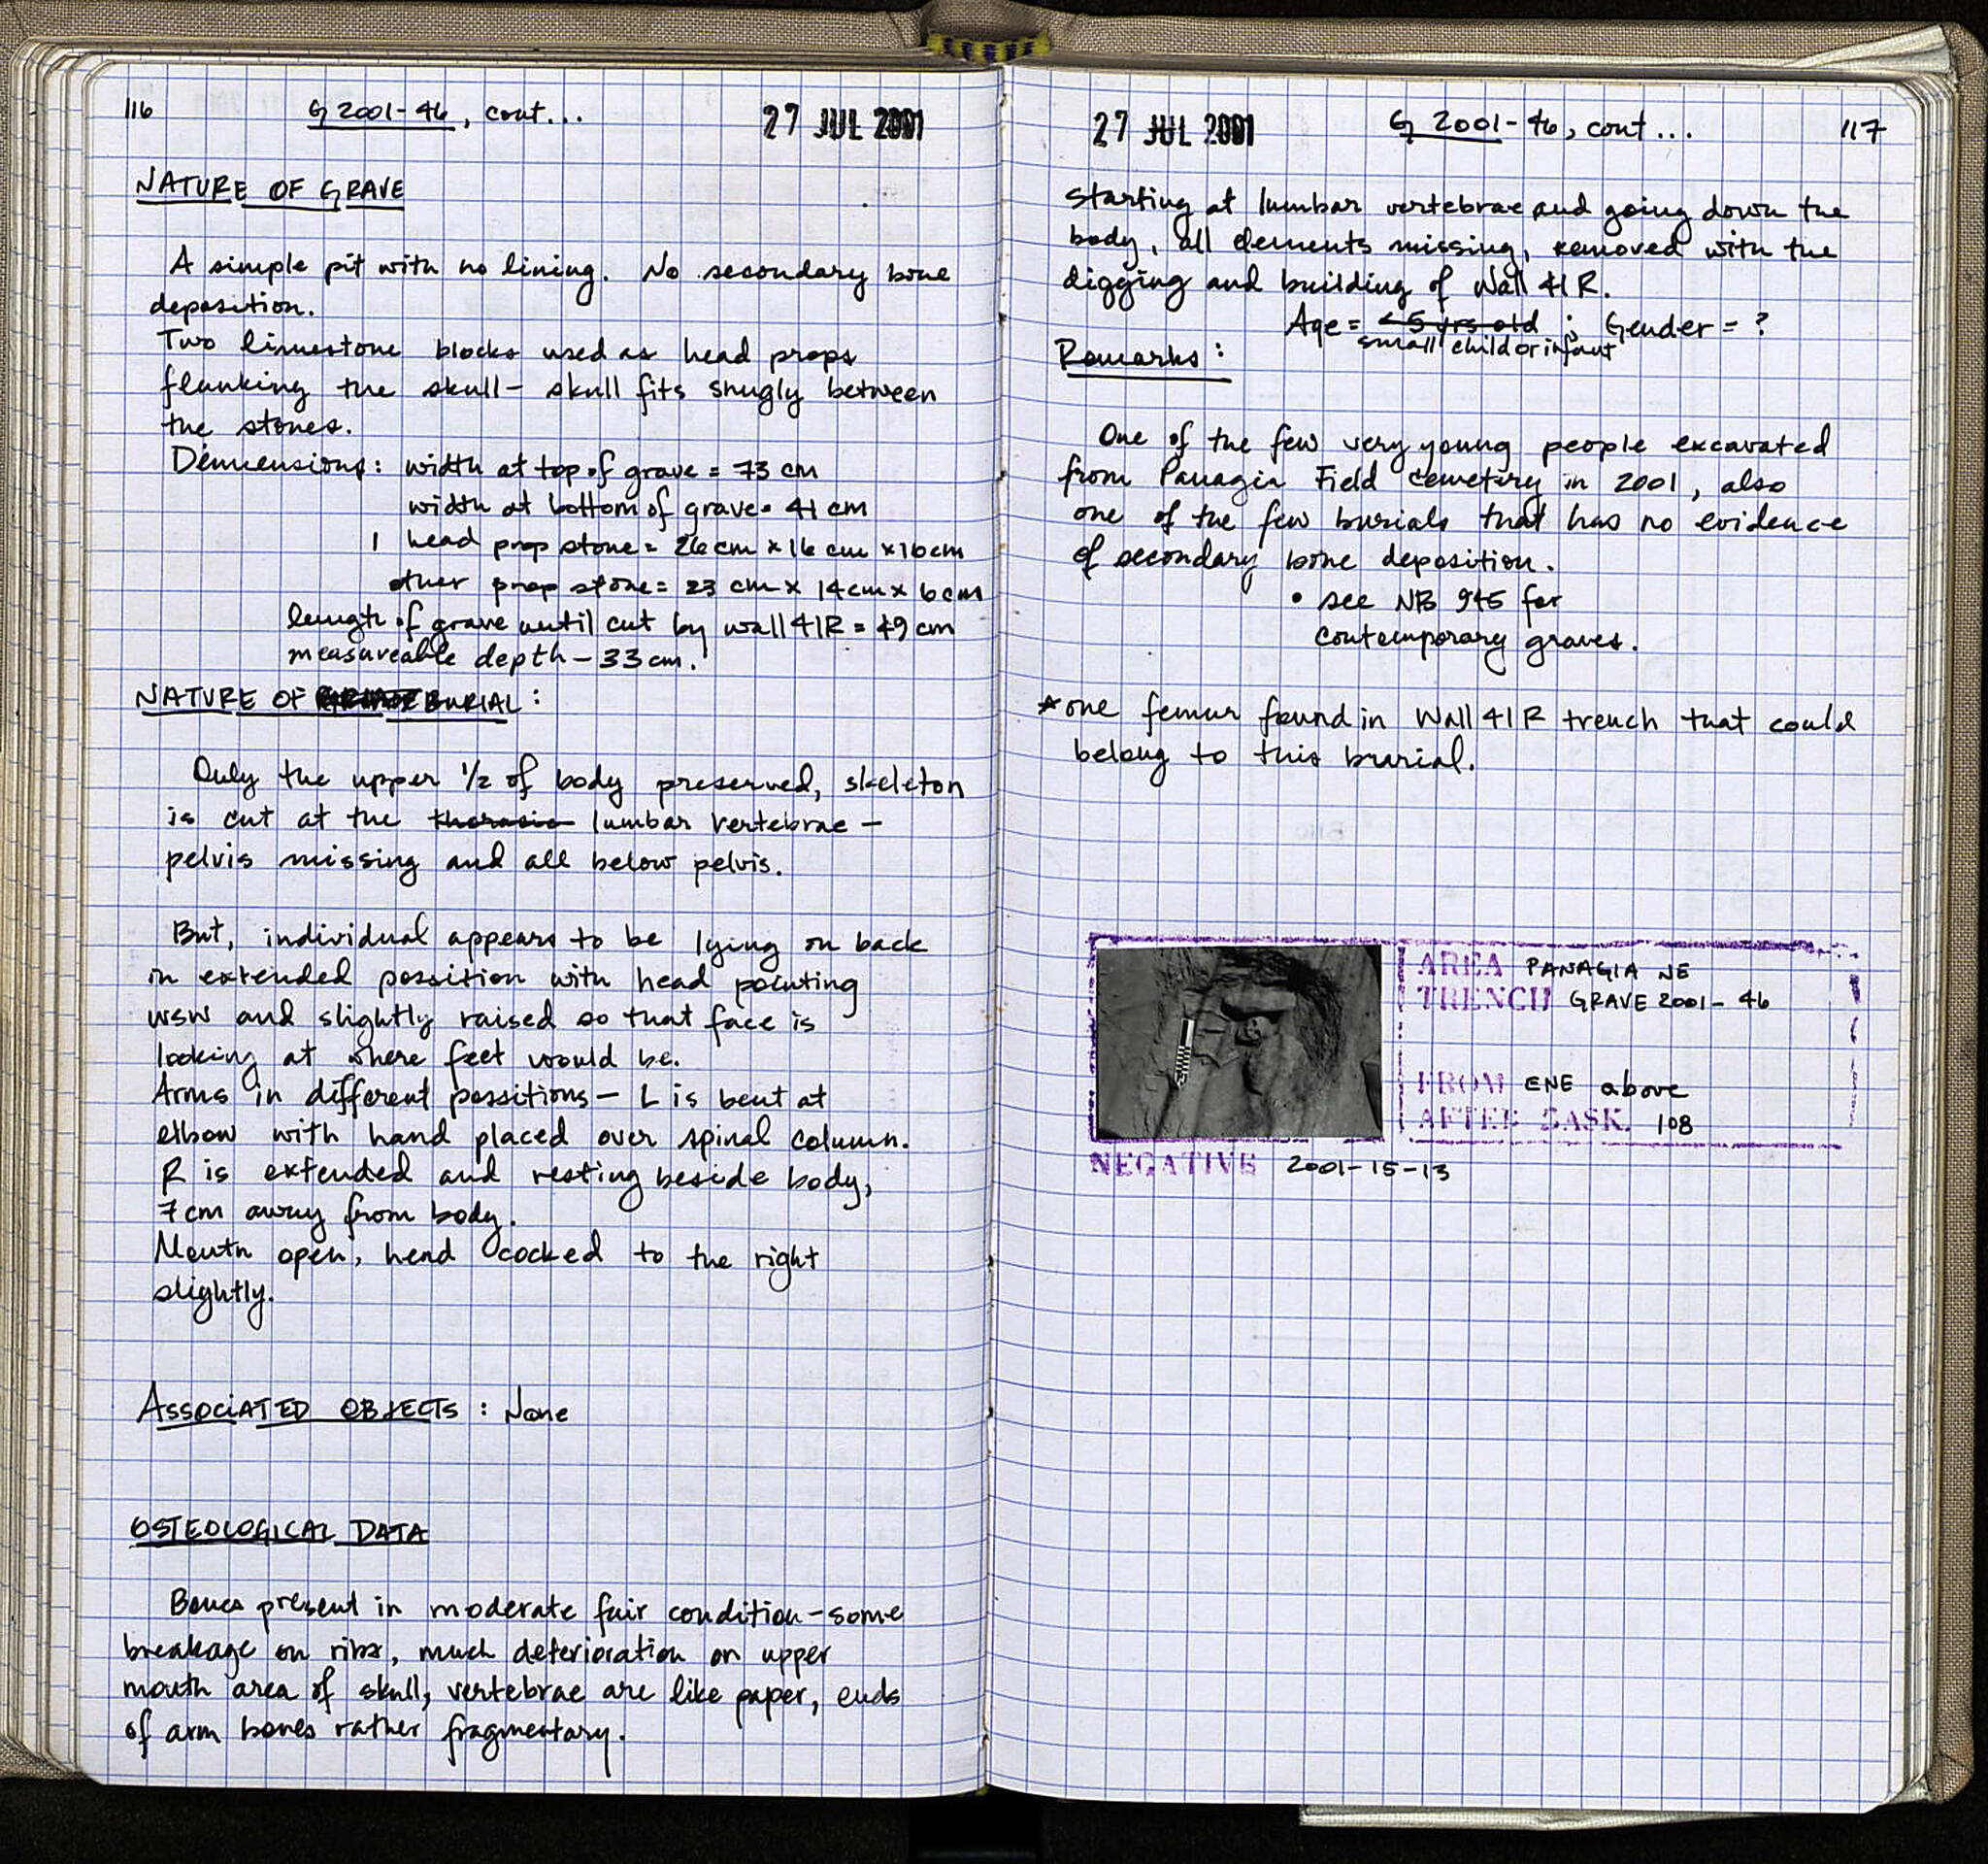 116 G 2001-46, cont... 27 JUL 2001
NATURE OF GRAVE
A simple pit with no lining. No secondary bone
deposition.
Two limestone blocks used as head props
flanking the skull - skull fits snugly between
the stones.
Dimensions: width at top of grave = 73 cm
width at bottom of grave = 41 cm
1 head prop stone = 26 cm x 16 cm x 10 cm
other prop stone = 23 cm x 14 cm x 6 cm
length of grave until cut by wall 41R = 49 cm
measureable depth - 33 cm.
NATURE OF BURIAL:
Only the upper 1/2 of body preserved, skeleton
is cut at the thorasic lumbar vertebrae -
pelvis missing and all below pelvis.
But, individual appears to be lying on back
in extended possition with head pointing
WSW and slightly raised so that face is
looking at where feet would be.
Arms in different possitions - L is bent at
elbow with hand placed over spinal column.
R is extended and resting beside body,
7 cm away from body.
Mouth open, head cocked to the right
slightly.
ASSOCIATED OBJECTS: None
OSTEOLOGICAL DATA
Bones present in moderate fair condition - some
breakage on ribs, much deterioration on upper
mouth area of skull, vertebrae are like paper, ends
of arm bones rather fragmentary.
27 JUL 2001 G 2001-46, cont... 117
starting at lumbar vertebrae and going down the
body, all elements missing, removed with the
digging and building of Wall 41R.
Age = < 5 yrs old ; Gender = ?
small child or infant
Remarks:
One of the few very young people excavated
from Panagia Field cemetery in 2001, also
one of the few burials that has no evidence
of secondary bone deposition.
• see NB 945 for
contemporary graves.
* one femur found in Wall 41R trench that could
belong to this brurial.
AREA PANAGIA NE
TRENCH GRAVE 2001-46
FROM ENE above
AFTER BASK. 108
NEGATIVE 2001-15-13